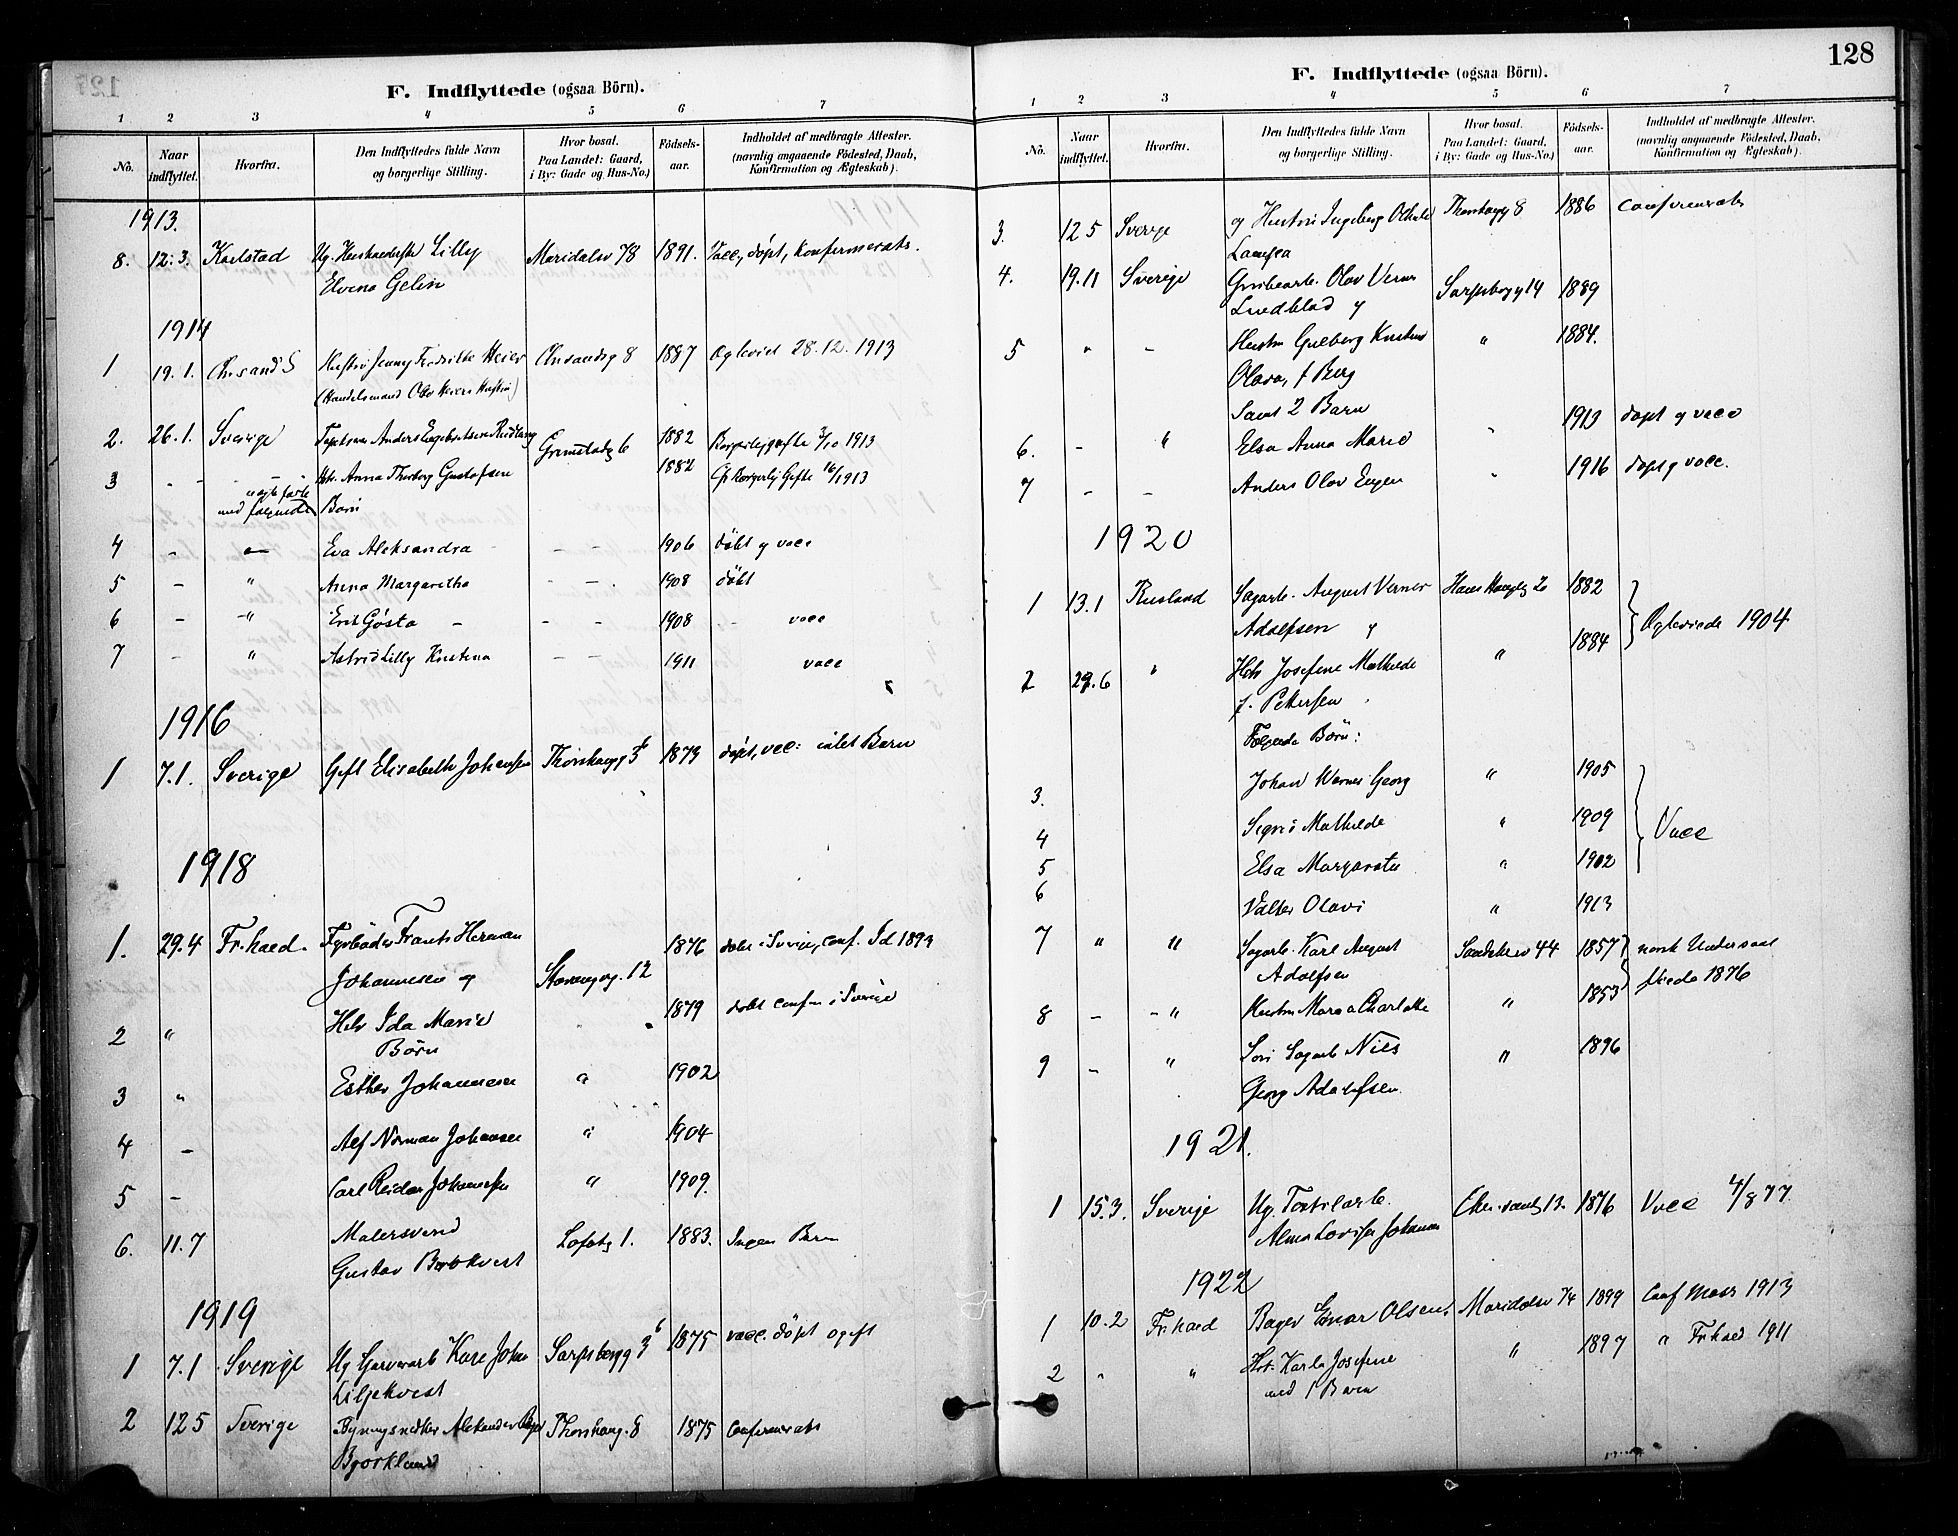 F. Indflyttede (ogsaa Börn).
1 2 3 4 5 6 7
No. Naar indflyttet. Hvorfra. Den Indflyttedes fulde Navn og borgerlige Stilling. Hvor bosat. Paa Landet: Gaard, i By: Gade og Hus-No.) Födsels-aar. Indholdet af medbragte Attester. (navnlig angaaende Födested, Daab, Konfirmation og Ægteskab).
1913.
8. 12.3. Karlstad Ug. Lilly Maridalsv 78 1891. Vacc, döpt, Konfirmerats.
Elvena Gelin
1914
1 19.1. Chrsand S Hustru Jenny Fredrikke Heier Chrsandsg 8 1887 Egteviet 28.12.1913
(Handelsmand Olav Heiers Hustru)
2. 26.1. Sverige Anders Grimstadg 6 1882 Borgerlig gifte 3/10 1913
3 - - Htr. Anna Thorborg Gustafsen 1882 Borgerlig Gifte 16/ 1913
med følgende Børn
4 - - Eva Aleksandra - - 1906 döbt g vacc
5 - " Anna Margaretha - - 1908 döbt
6 - " Erik Gösta - - - 1908 - vacc
7 - " Astrid Lilly Kristina - - 1911 vacc
1916
1 7.1. Sverige Gift Elisabeth Johansen Thorshaugg 3 1873 döpt, vacc: intet Barn
1918
1. 29.4 Fr.hald. Fyrbøder Frants Herman 1876 döbt i Sverige, conf. Id 1893
Johannesen og Stavangg. 12
2 " Htr Ida Marie " 1879 döbt conf i Sverige
Børn
3 " Esther Johannesen " 1902
4 - Alf Norman Johansen " 1904
5 - Carl Reidar Johannesen " 1909.
6. 11.7 Malersvend Lofotg 1. 1883. Ingen Barn
Gustav
1919
1 7.1 Sverige Ug Garverarb Karl Johan Sarpsborgg 3 6 1875 vacc. döpt ogift
Liljekvist
2 12 5 Sverige Aleksander Thorshaug. 8 1875 Confirmerats
Bjørklund
128
F. Indflyttede (ogsaa Börn).
1 2 3 4 5 6 7
No. Naar indflyttet. Hvorfra. Den Indflyttedes fulde Navn og borgerlige Stilling. Hvor bosat. Paa Landet: Gaard, i By: Gade og Hus-No.) Födsels-aar. Indholdet af medbragte Attester. (navnlig angaaende Födested, Daab, Konfirmation og Ægteskab).
3. 12 5 Sverige og Hustru Ingeborg Thorshaugg 8 1886 Confirmerats
4. 19.11 Sverige Olov Verner Sarpsborgg 14 1889
Lundblad g
5 " - Hustru Gulborg Kristine " 1884.
Olava, f Berg
Samt 2 Barn
6. - " Elsa Anna Maria " 1913 döpt g vacc
7 - - Anders Olov Eugen " 1916 döpt g vacc.
1920
1 13.1 Rusland Sagarb. August Verner Hans Haugesg 20 1882 Egteviede 1904
Adolfsen g
2 29.6 " Htr Josefine Mathilde " 1884
f. Pettersen
Følgende Börn:
3. Johan Werner Georg " 1905
4 Signe Mathilde " 1909 Vacc
5 Elsa Margareta " 1902
6 Valter Olavi " 1913
7 " " Sagarb. Karl August Sandakerv 44 1857 norsk Undersaat
Adolfsen Viede 1876
8 - - " Hustru Maria Charlotte " 1853
9 - " Søn Sagarb Nils " 1896
Georg Adolfsen.
1921.
1 15.3. Sverige Ug. Textilarb. Chr.sandg 12. 1876 Vacc 4/8 77
Alma Lovisa Johanson
1922
1 10.2 Fr.hald Bager Einar Olsen. Maridalsv 74 1899 Conf Moss 1913
2 " " Htr. Karla Josefine " 1897 " Fr.hald 1911
med 1 Barn